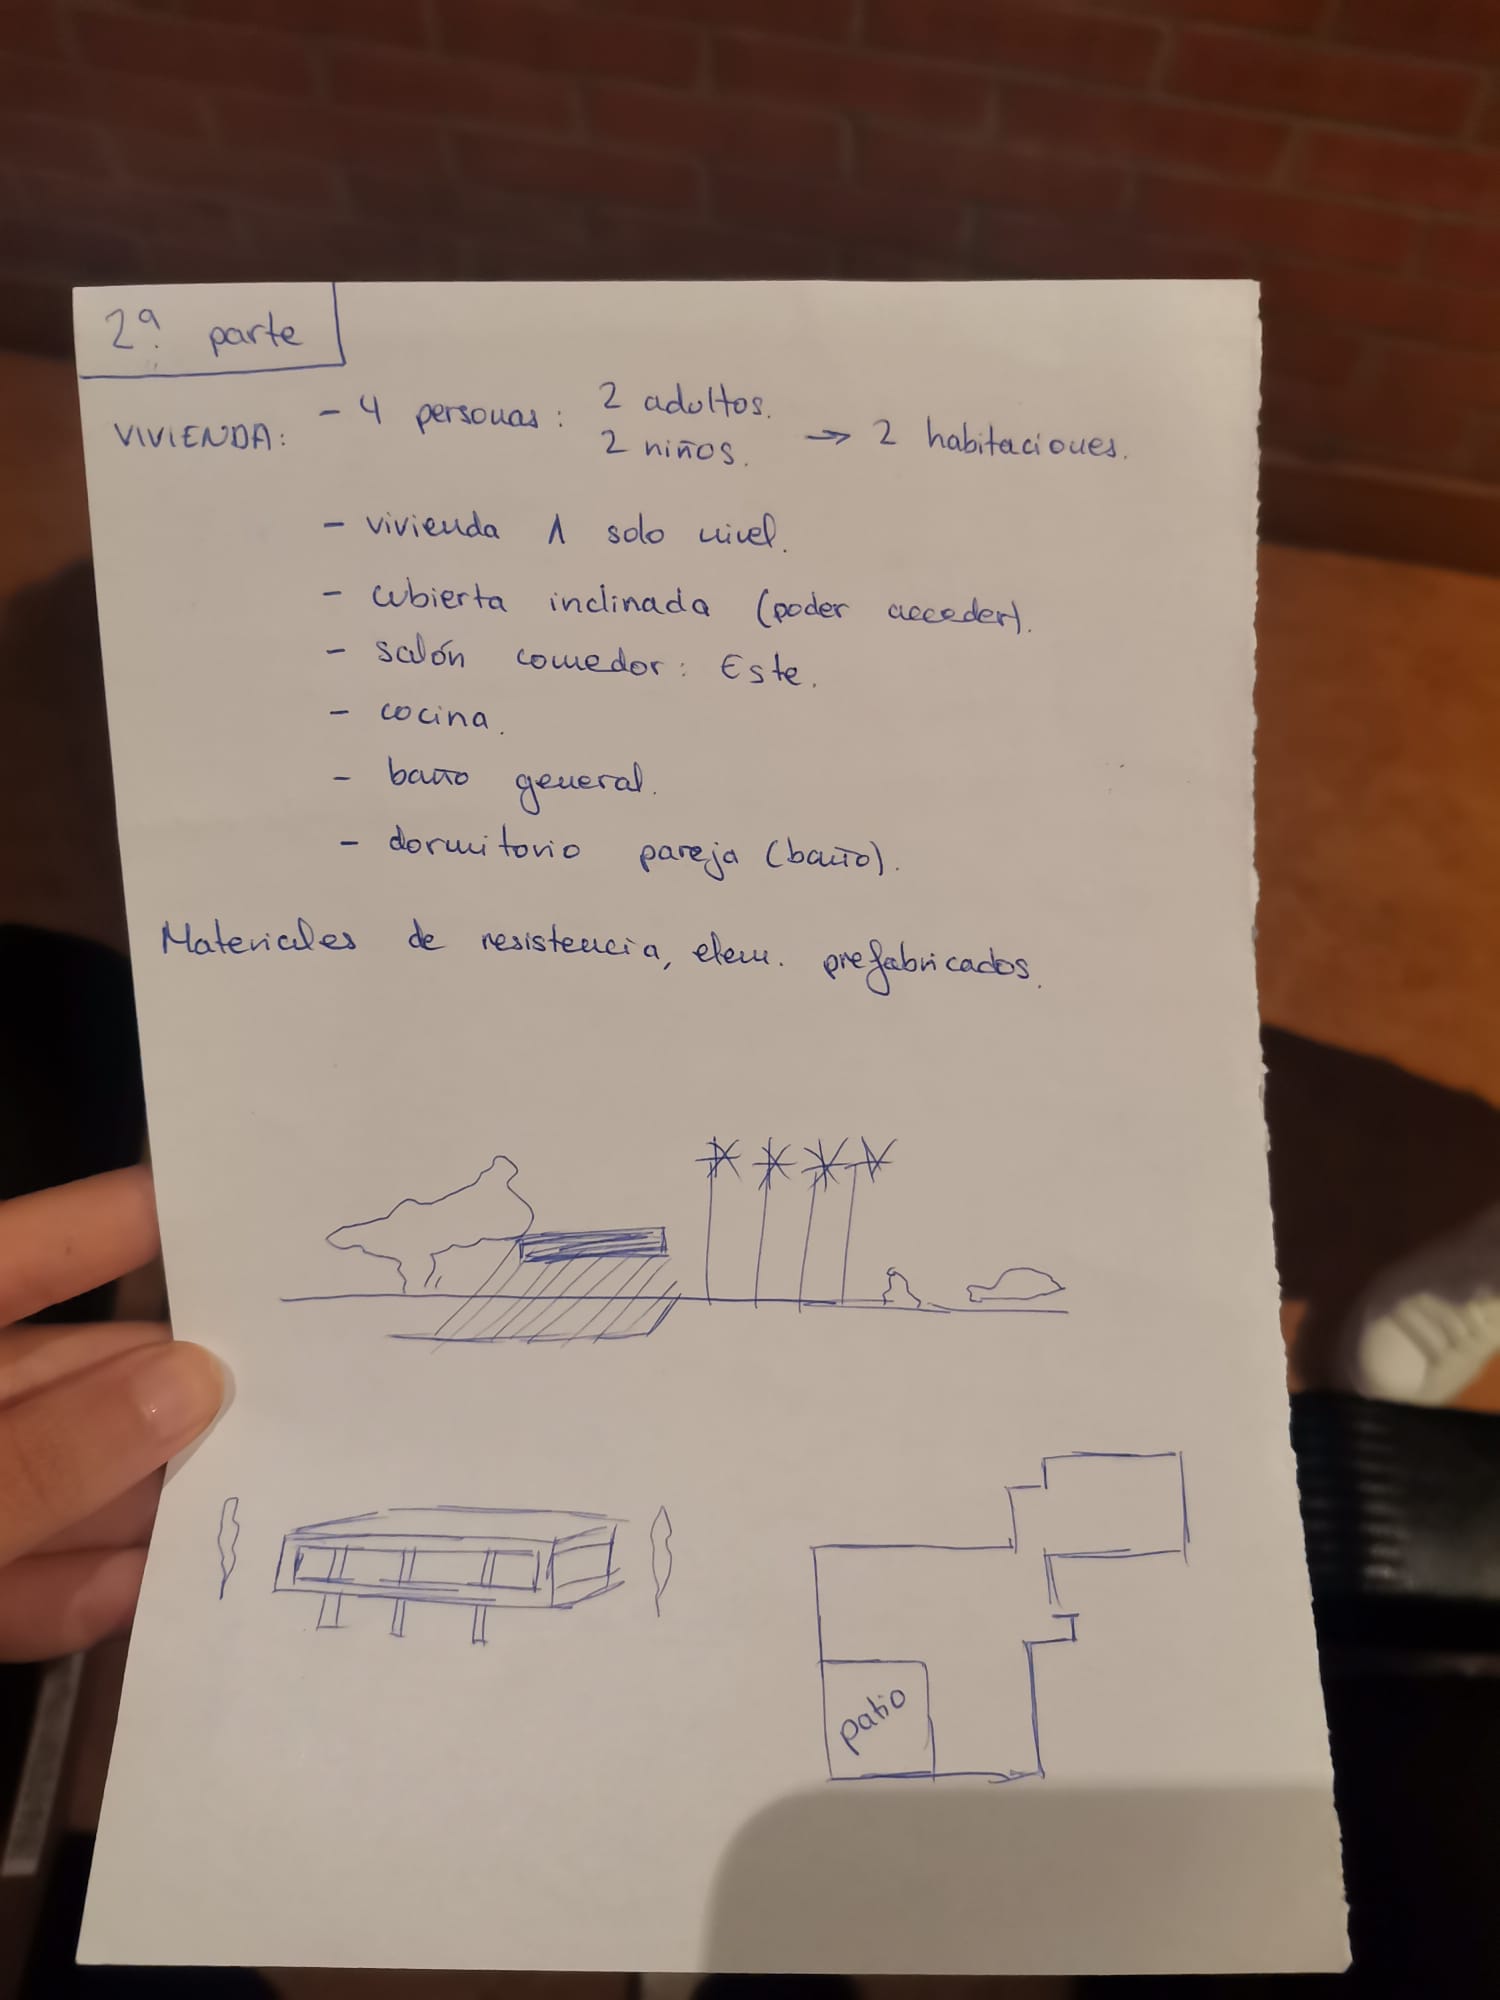 2ª parte
VIVIENDA: - 4 personas: 2 adultos.
2 niños. → 2 habitaciones.
- vivienda 1 solo nivel.
- cubierta inclinada (poder acceder).
- salón comedor: Este.
- cocina.
- baño general.
- dormitorio pareja (baño).
Materiales de resistencia, elem. prefabricados.
patio